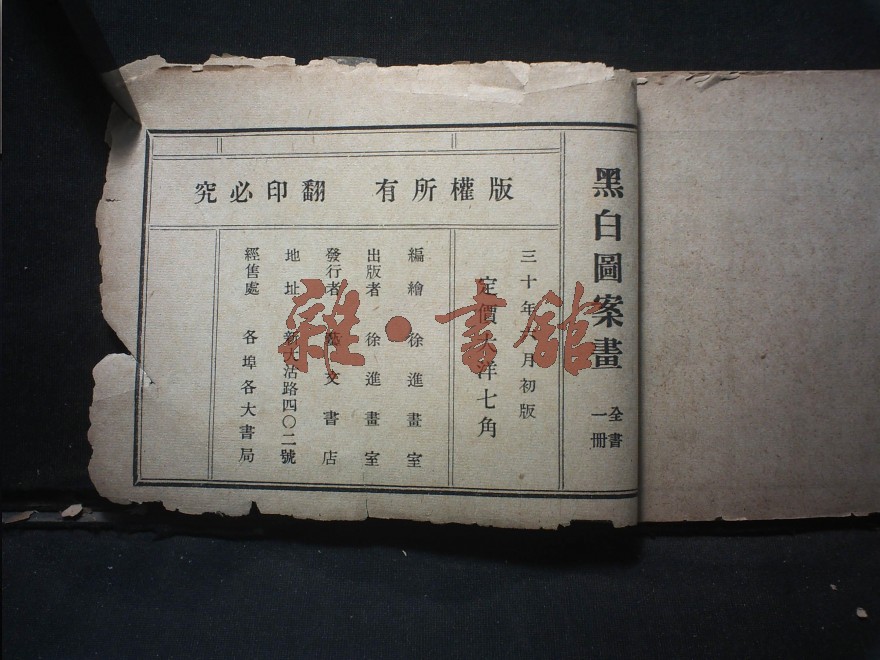 黑白圖案畫
全書
一冊
版權所有 翻印必究
三十年 月初版
定價大洋七角
編繪 徐進畫室
出版者 徐進畫室
發行者 藝文書店
地址 新大沽路四〇二號
經售處 各埠各大書局
雜·書館